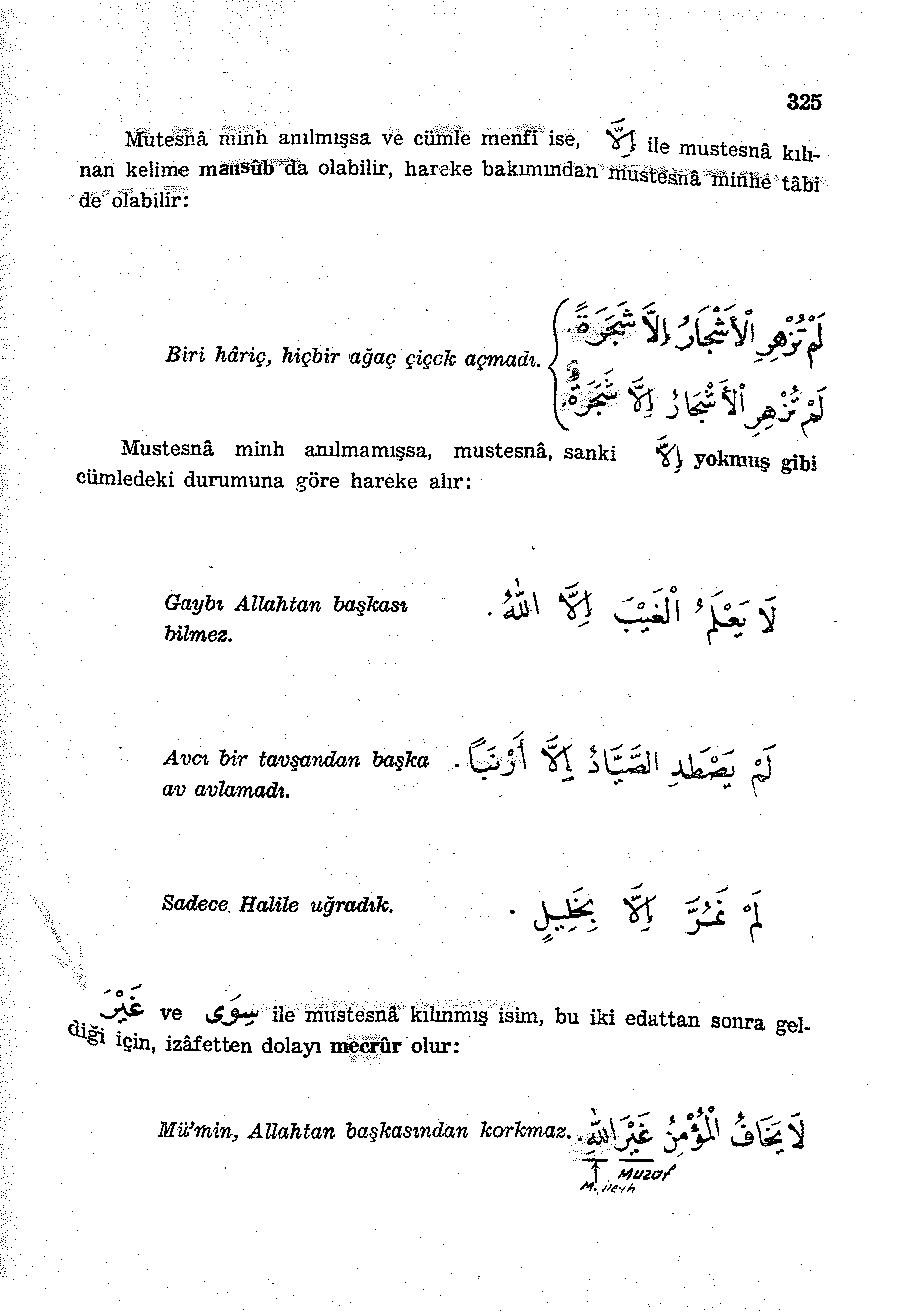 325
Mütesnâ minh anılmışsa ve cümle menfî ise, إِلَّا ile mustesnâ kılı-
nan kelime mansûb da olabilir, hareke bakımından mustesnâ minhe tâbi
de olabilir:
لَمْ تُزْهِرِ الْأَشْجَارُ إِلَّا شَجَرَةً.
Biri hâriç, hiçbir ağaç çiçek açmadı.
لَمْ تُزْهِرِ الْأَشْجَارُ إِلَّا شَجَرَةٌ.
Mustesnâ minh anılmamışsa, mustesnâ, sanki إِلَّا yokmuş gibi
cümledeki durumuna göre hareke alır:
Gaybı Allahtan başkası لَا يَعْلَمُ الْغَيْبَ إِلَّا اللّٰهُ.
bilmez.
Avcı bir tavşandan başka لَمْ يَصْطَدِ الصَّيَّادُ إِلَّا أَرْنَبًا.
av avlamadı.
Sadece Halile uğradık. لَمْ نَمُرَّ إِلَّا بِخَلِيلٍ.
غَيْرَ ve سِوَى ile mustesnâ kılınmış isim, bu iki edattan sonra gel-
diği için, izâfetten dolayı mecrûr olur:
Mü'min, Allahtan başkasından korkmaz. لَا يَخَافُ الْمُؤْمِنُ غَيْرَ اللّٰهِ.
Muzaf
M. ileyh